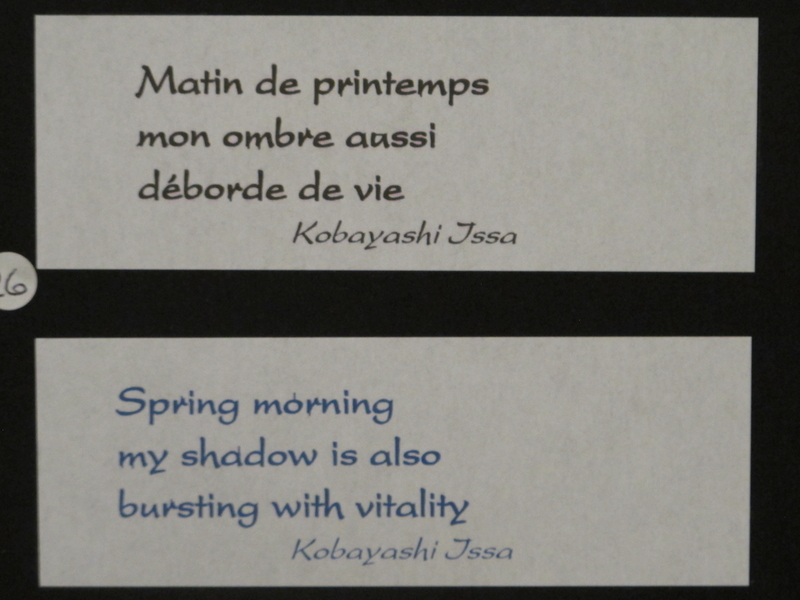 Matin de printemps
mon ombre aussi
déborde de vie
Kobayashi Issa
26
Spring morning
my shadow is also
bursting with vitality
Kobayashi Issa